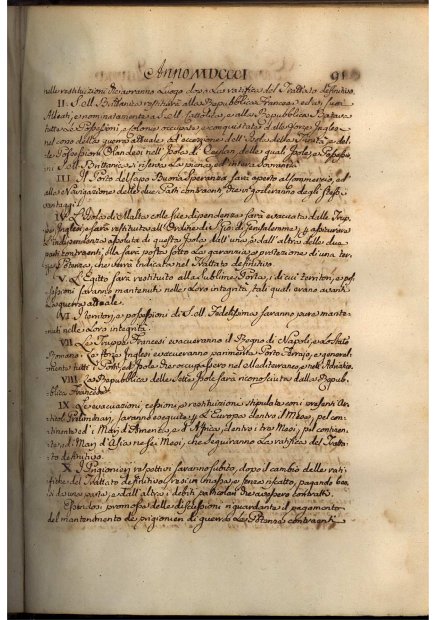 Anno MDCCCI 9
nelle restituzioni che avranno luogo dopo la ratifica del Trattato definitivo.
II. S. M. Britannica restituirà alla Repubblica Francese ed a' suoi
Alleati, e nominatamente a S. M. Cattolica, e alla Repubblica Batava
tutte le Possessioni, e Colonie occupate, e conquistate dalle forze Inglesi
nel corso della guerra attuale ad eccezione dell'Isola della Trinità, e del-
le Possessioni Olandesi nell'Isola di Ceylan, delle quali Isole, e Possessio-
ni S. M. Britannica si riserva la piena, ed intera Sovranità.
III. Il Porto del Capo Buona Speranza sarà aperto al commercio, ed
alla Navigazione delle due Parti contraenti, che vi goderanno degli stessi
vantaggi.
IV. L'Isola di Malta colle sue dipendenze sarà evacuata dalle Trup-
pe Inglesi, e sarà restituita all'Ordine di S. Gio: di Jerusalemme; e assicurare
l'indipendenza assoluta di questa Isola dall'una, e dall'altra delle due
parti contraenti, essa sarà posta sotto la garanzia, e protezione di una ter-
za Potenza, che verrà indicata nel Trattato definitivo.
V. L'Egitto sarà restituito alla sublime Porta, i di cui territorj, e pos-
sessioni saranno mantenuti nella loro integrità, tali quali erano avanti
la guerra attuale.
VI. I territorj, e possessioni di S. M. Fedelissima saranno pure mante-
nuti nella loro integrità.
VII. Le Truppe Francesi evacueranno il Regno di Napoli, e lo Stato
Romano. Le forze Inglesi evacueranno parimenti Porto Ferrajo, e general-
mente tutti i Porti, ed Isole che occupassero nel Mediterraneo, e nell'Adriatico.
VIII. La Repubblica delle Sette Isole sarà riconosciuta dalla Repub-
blica Francese.
IX. Le evacuazioni, cessioni, e restituzioni stipulate coi presenti Ar-
ticoli Preliminari, saranno eseguite per l'Europa dentro il Mese, pel con-
tinente, ed i Mari d'America, e d'Africa, dentro i tre Mesi, pel continen-
te, ed i Mari d'Asia ne' sei Mesi, che seguiranno la ratifica del Tratta-
to definitivo.
X. I Prigionieri rispettivi saranno subito, dopo il cambio delle rati-
fiche del Trattato definitivo, resi in massa, e senza riscatto, pagando bensì
da una parte, e dall'altra i debiti particolari che avessero contratti.
Essendosi promosse delle discussioni riguardanti il pagamento
del mantenimento de' prigionieri di guerra, le Potenze contraenti